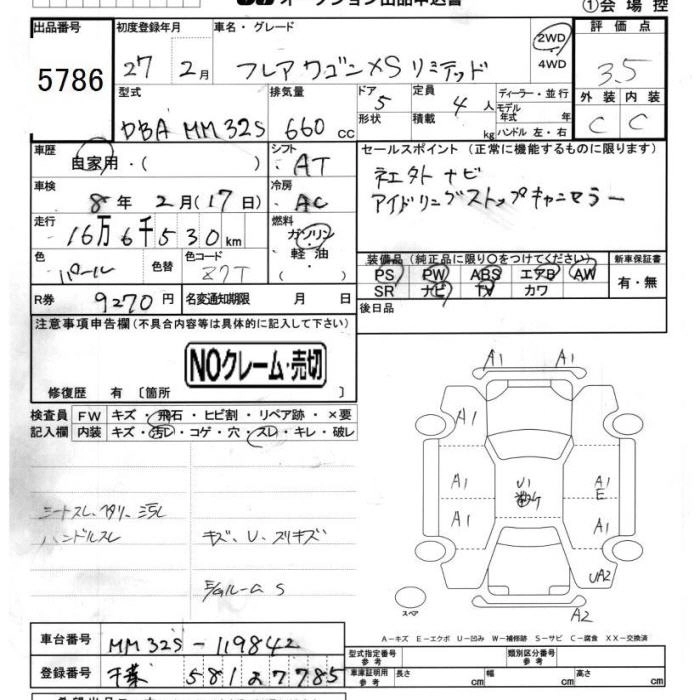 オークション出品申込書
①会場控
出品番号 初度登録年月 車名・グレード 評価点
5786 27 2月 フレアワゴンXSリミテッド 2WD 4WD 3.5
型式 排気量 ドア 定員 ディーラー・並行 外装 内装
DBA MM32S 660 cc 5 4人 モデル年式 年 C C
形状 積載 kg ハンドル 左・右
車歴 シフト セールスポイント (正常に機能するものに限ります)
自家用・( ) AT
車検 冷房 ナビ
8年 2月(17日) AC アイドリングストップキャンセラー
走行 燃料
16万6千530km ガソリン・軽油・( )
色 色替 色コード 装備品(純正品に限り○をつけてください) 新車保証書
パール Z7T PS PW ABS エアB AW 有・無
R券 名変通知期限 SR ナビ TV カワ
9270円 月 日 後日品
注意事項申告欄(不具合内容等は具体的に記入して下さい)
NOクレーム・売切
修復歴 有 〔箇所 〕
検査員 FW キズ・飛石・ヒビ割・リペア跡・×要
記入欄 内装 キズ・汚レ・コゲ・穴・スレ・キレ・破レ
A1 A1
A1
A1 U1 A1 E
A1 A1
UA2
A2
シートスレ、ヘタリ、汚レ
ハンドルスレ キズ、U、スリキズ
S
スペア
A-キズ E-エクボ U-凹み W-補修跡 S-サビ C-腐食 XX-交換済
車台番号 MM32S-119842 型式指定番号 参考 類別区分番号 参考
登録番号 千葉 581 7785 車庫証明用 参考 長さ cm 幅 cm 高さ cm